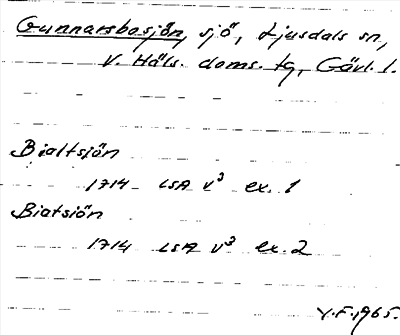 Gunnarsbosjön, sjö, Ljusdals sn,
V. Häls. doms. tg, Gävl. l.
Bialtsjön
1714 LSA V³ ex. 1
Biatsiön
1714 LSA V³ ex. 2
Y.F. 1965.